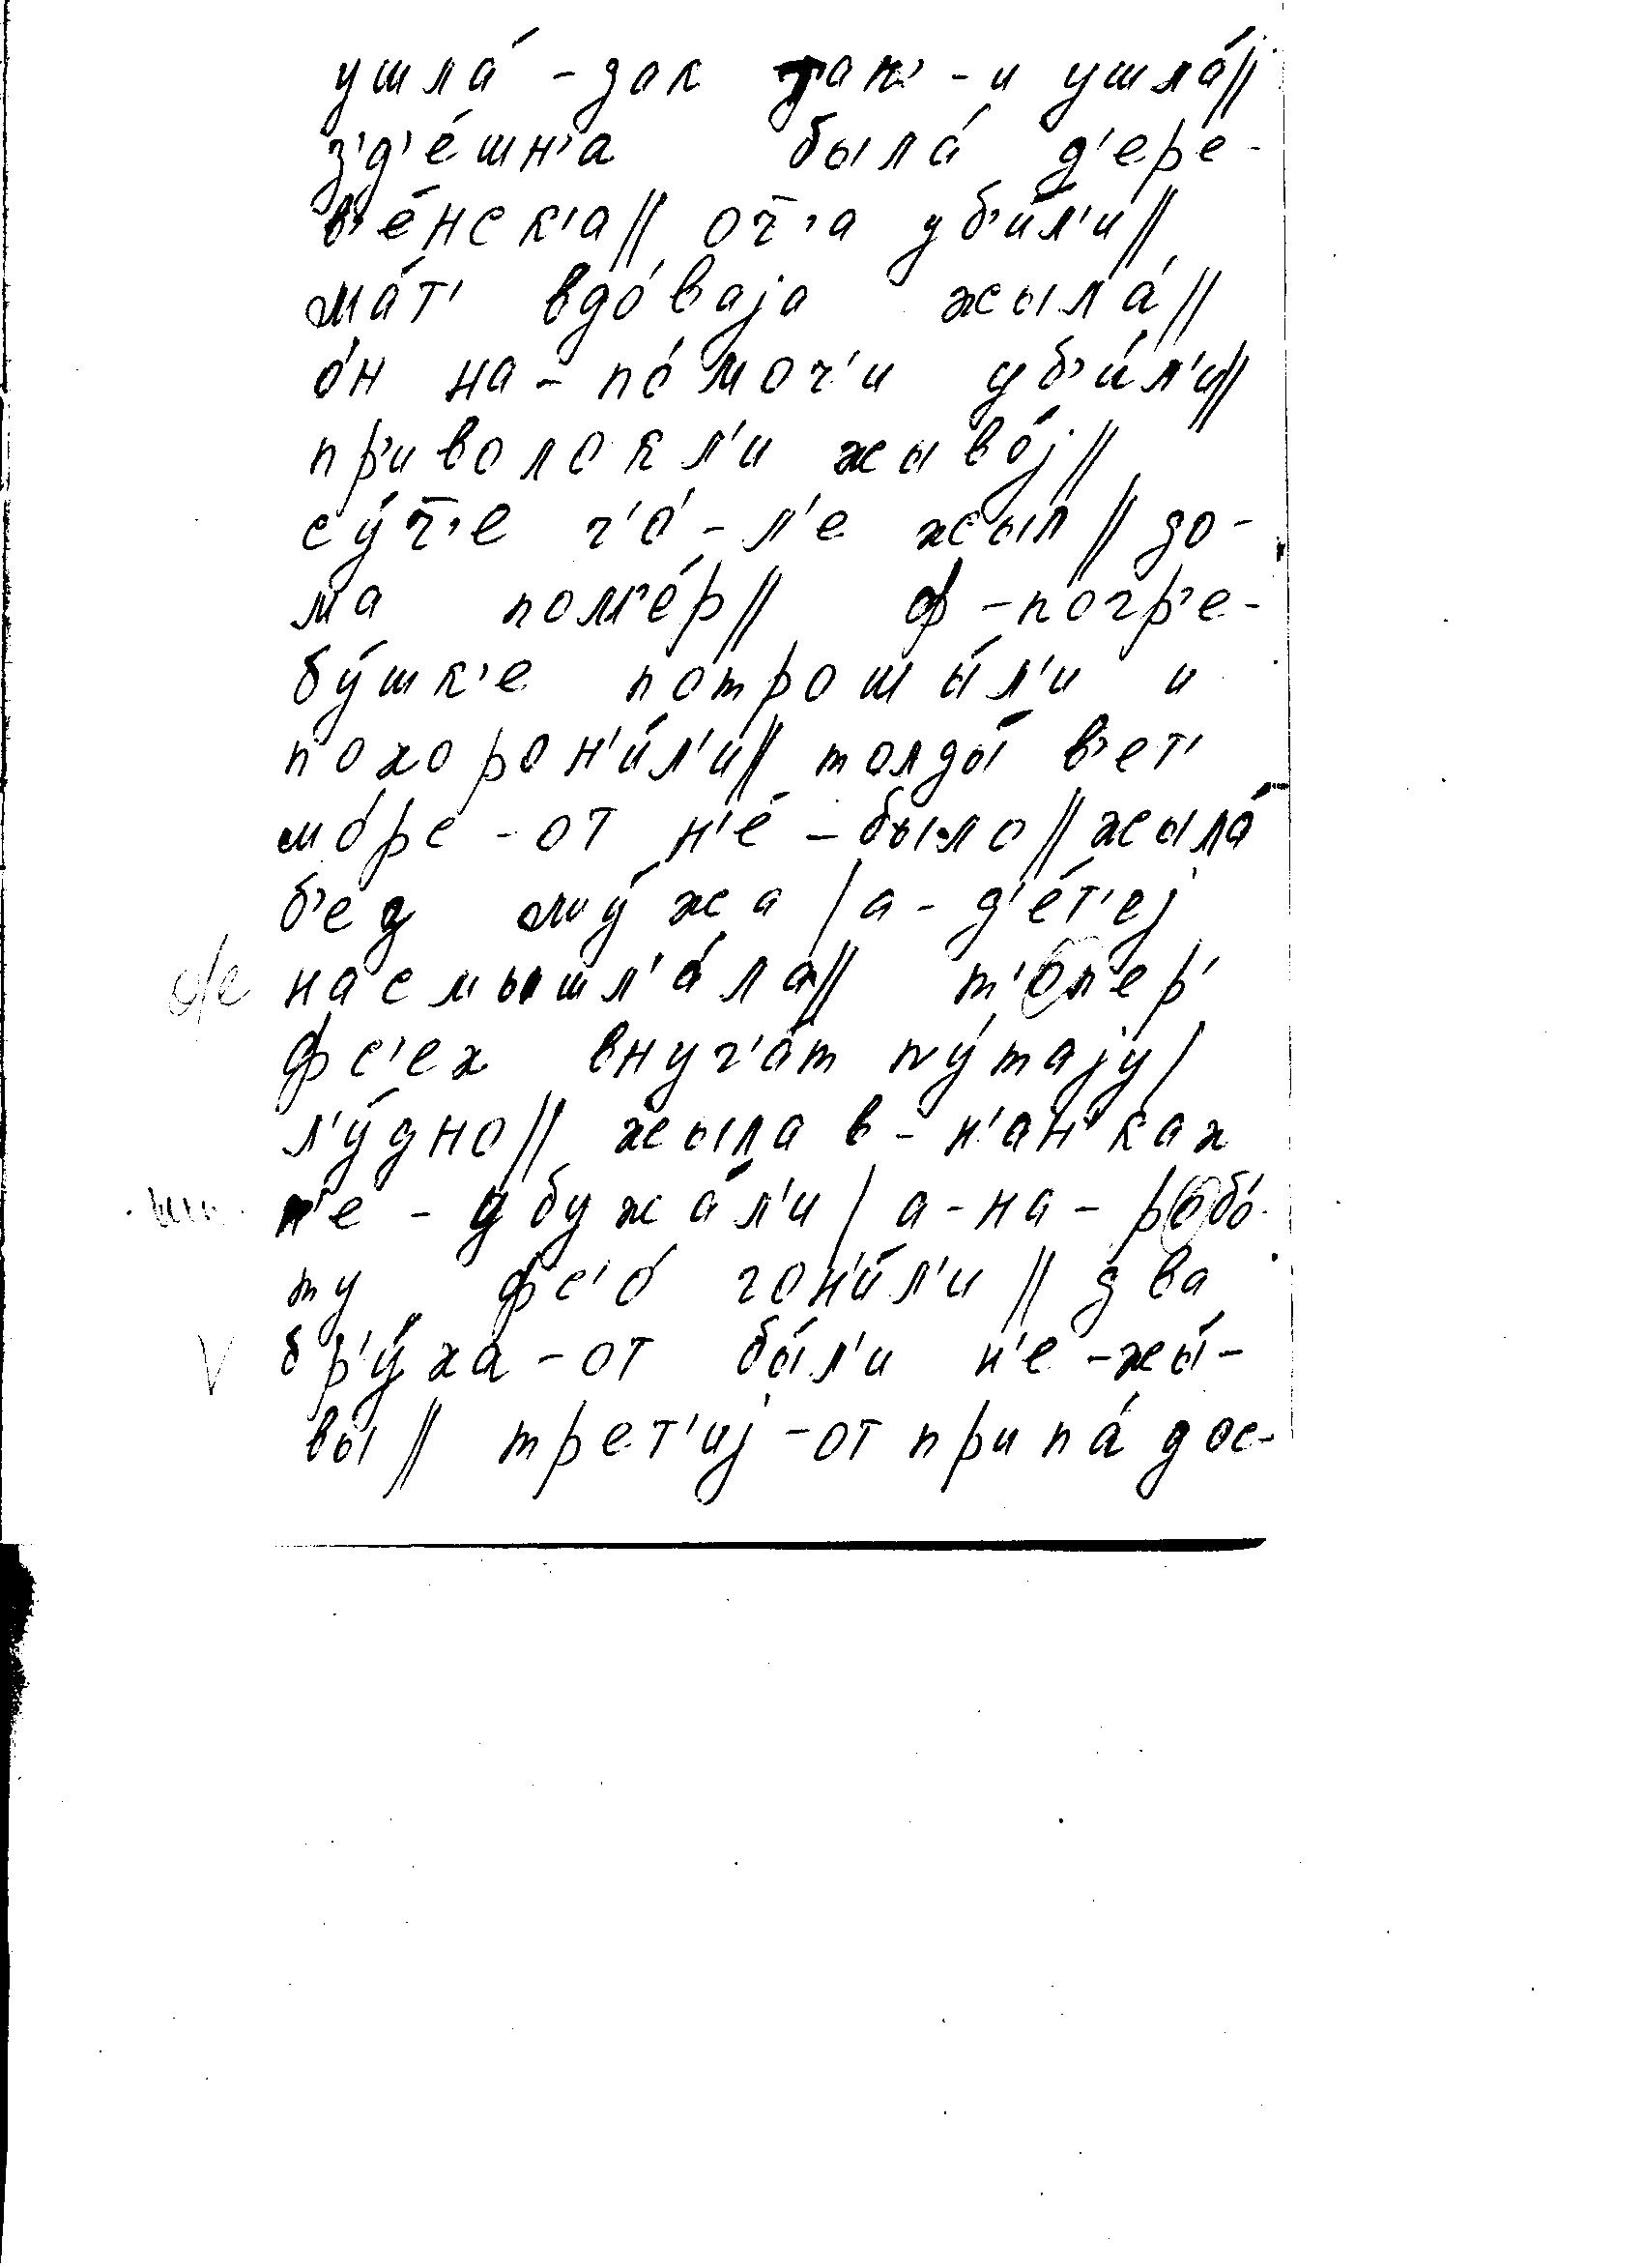 ушла́ - зак так' - и ушла́//
з'д'е́шн'а была́ д'ере-
в'е́нск'а// оч̄'а уб'и́л'и//
ма́т' вдо́ваjа жыла́//
о́н на - по́моч'и уб'и́л'и//
пр'иволокл'и жыво́j//
су́ч̄'е г'о́ - л'е жыл// до-
ма пом'е́р// ф - погр'е-
бу́шк'е потрошы́л'и и
похорон'и́л'и// толды́ в'ет'
мо́ре - от н'е́ - было// жыла́
б'ед му́жа / а - д'е́т'еj
насмышл'а́ла// т'опер'
фс'ех внуч'а́т пу́таjу/
л'у́дно// жыла в - н'ан'ках
н'е - дбужа́л'и / а - на - робо́-
ту фс'о́ гон'и́л'и// два
бр'у́ха - от бы́л'и н'е - жы́-
вы// трет'иj - от припа́дос-
о/е
V